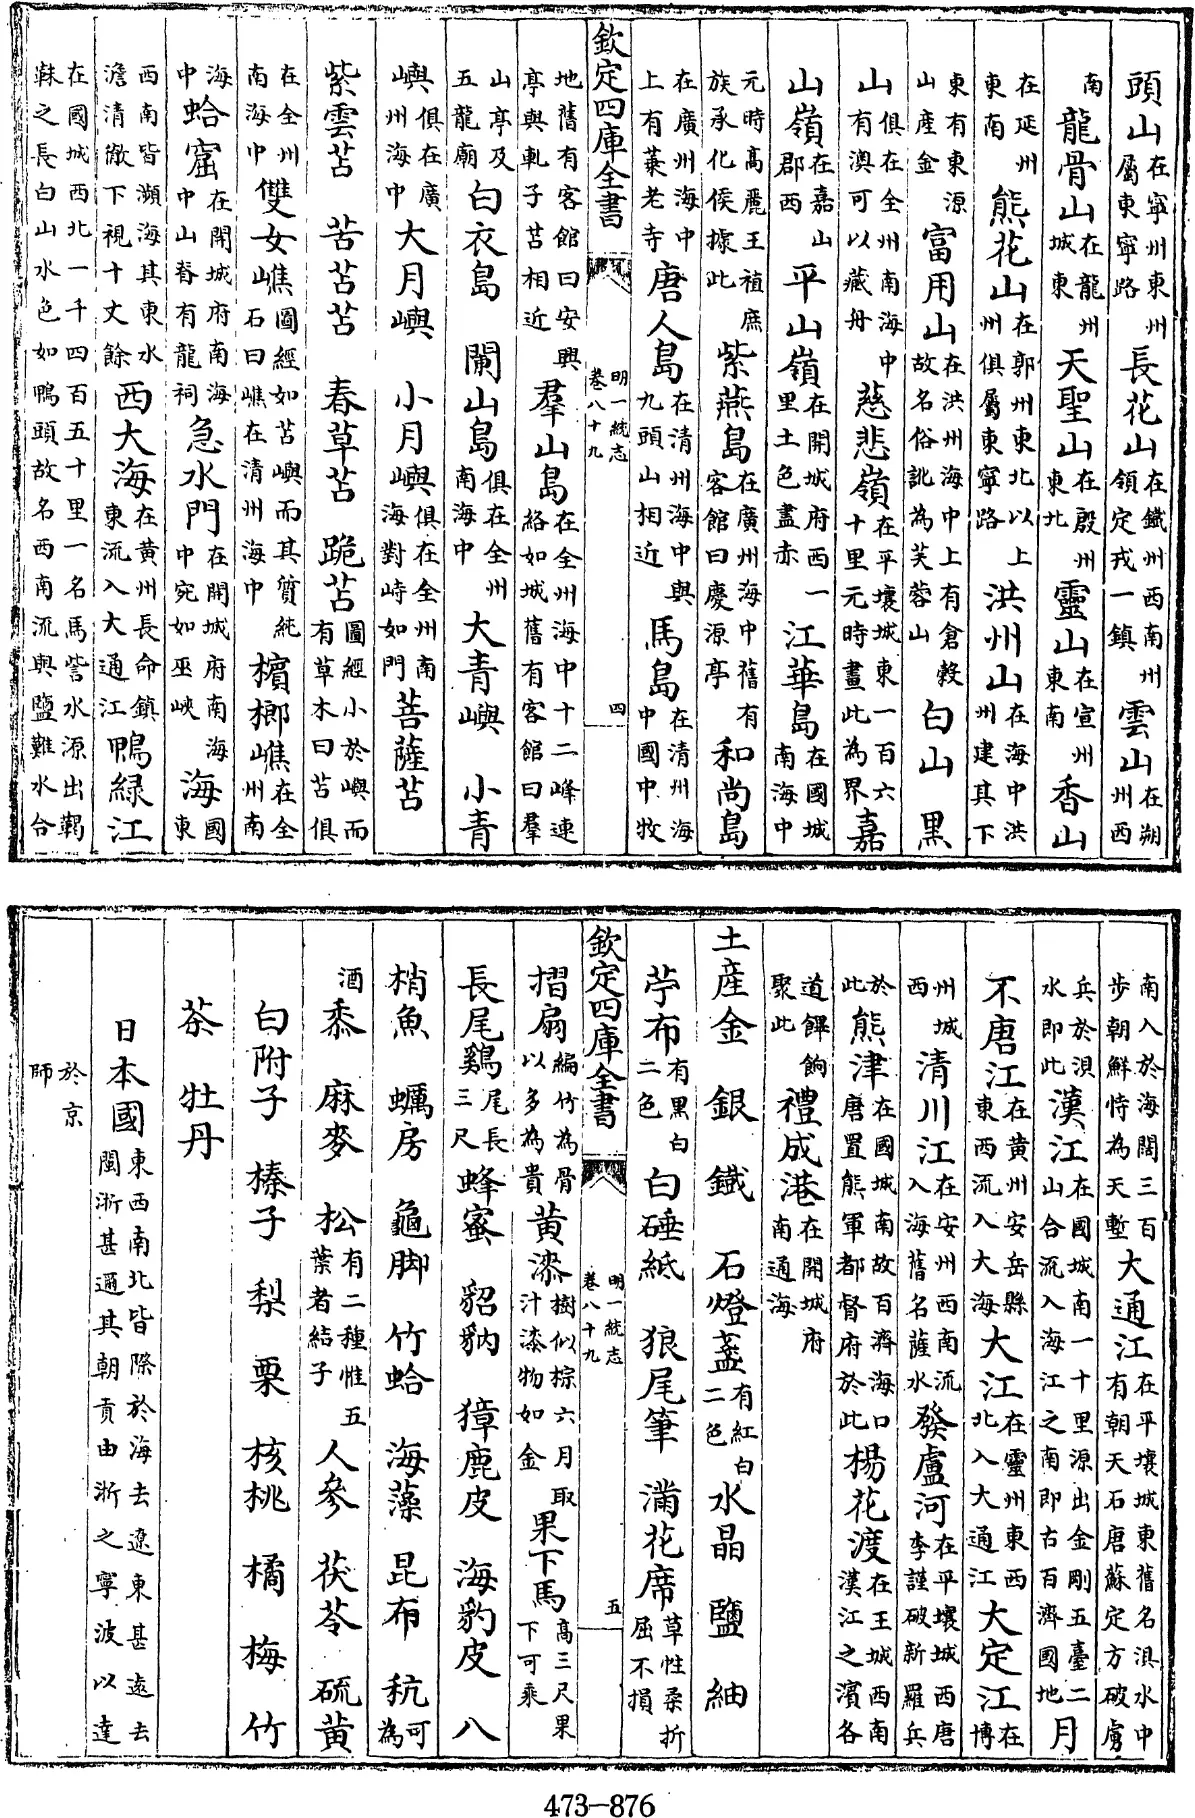 頭山在寧州東州屬東寧路長花山在鐵州西南州領定戎一鎮雲山在朔州西
南龍骨山在龍州城東天聖山在殷州東北靈山在宣州東南香山
在延州東南熊花山在郭州東北以上州俱屬東寧路洪州山在海中洪州建其下
東有東源山產金富用山在洪州海中上有倉穀故名俗訛為芙蓉山白山 黑
山俱在全州南海中有澳可以藏舟慈悲嶺在平壤城東一百六十里元時畫此為界嘉
山嶺在嘉山郡西平山嶺在開城府西一里土色盡赤江華島在國城南海中
元時高麗王禃庶族承化侯據此紫燕島在廣州海中舊有客館曰慶源亭和尚島
在廣州海中上有蔡老寺唐人島在清州海中與九頭山相近馬島在清州海中國中牧
欽定四庫全書 明一統志卷八十九 四
地舊有客館曰安興亭與軋子苫相近羣山島在全州海中十二峰連絡如城舊有客館曰羣
山亭及五龍廟白衣島 闌山島俱在全州南海中大青嶼 小青
嶼俱在廣州海中大月嶼 小月嶼俱在全州南海對峙如門菩薩苫
紫雲苫 苦苫苫 春草苫 跪苫圖經小於嶼而有草木曰苫俱
在全州南海中雙女嶕圖經如苫嶼而其質純石曰嶕在清州海中檳榔嶕在全州南
海中蛤窟在開城府南海中山脊有龍祠急水門在開城府南海中宛如巫峽海國東
西南皆瀕海其東水澹清徹下視十丈餘西大海在黃州長命鎮東流入大通江鴨綠江
在國城西北一千四百五十里一名馬訾水源出鞨靺之長白山水色如鴨頭故名西南流與鹽難水合
南入於海闊三百步朝鮮恃為天塹大通江在平壤城東舊名浿水中有朝天石唐蘇定方破虜
兵於浿水即此漢江在國城南一十里源出金剛五臺二山合流入海江之南即古百濟國地月
不唐江在黃州安岳縣東西流入大海大江在靈州東西北入大通江大定江在博
州城西清川江在安州西南流入海舊名薩水發盧河在平壤城西唐李謹破新羅兵
於此熊津在國城南故百濟海口唐置熊軍都督府於此楊花渡在王城西南漢江之濱各
道餫餉聚此禮成港在開城府南通海
土產金 銀 鐵 石燈盞有紅白二色水晶 鹽 紬
苧布有黑白二色白硾紙 狼尾筆 滿花席草性柔折屈不損
欽定四庫全書 明一統志卷八十九 五
摺扇編竹為骨以多為貴黃漆樹似棕六月取汁漆物如金果下馬高三尺果下可乘
長尾鷄尾長三尺蜂蜜 貂豽 獐鹿皮 海豹皮 八
梢魚 蠣房 龜脚 竹蛤 海藻 昆布 秔可為
酒黍 麻麥 松有二種惟五葉者結子人參 茯苓 硫黃
白附子 榛子 梨 栗 核桃 橘 梅 竹
茶 牡丹
日本國東西南北皆際於海去遼東甚遠去閩浙甚邇其朝貢由浙之寧波以達
於京師
473—876